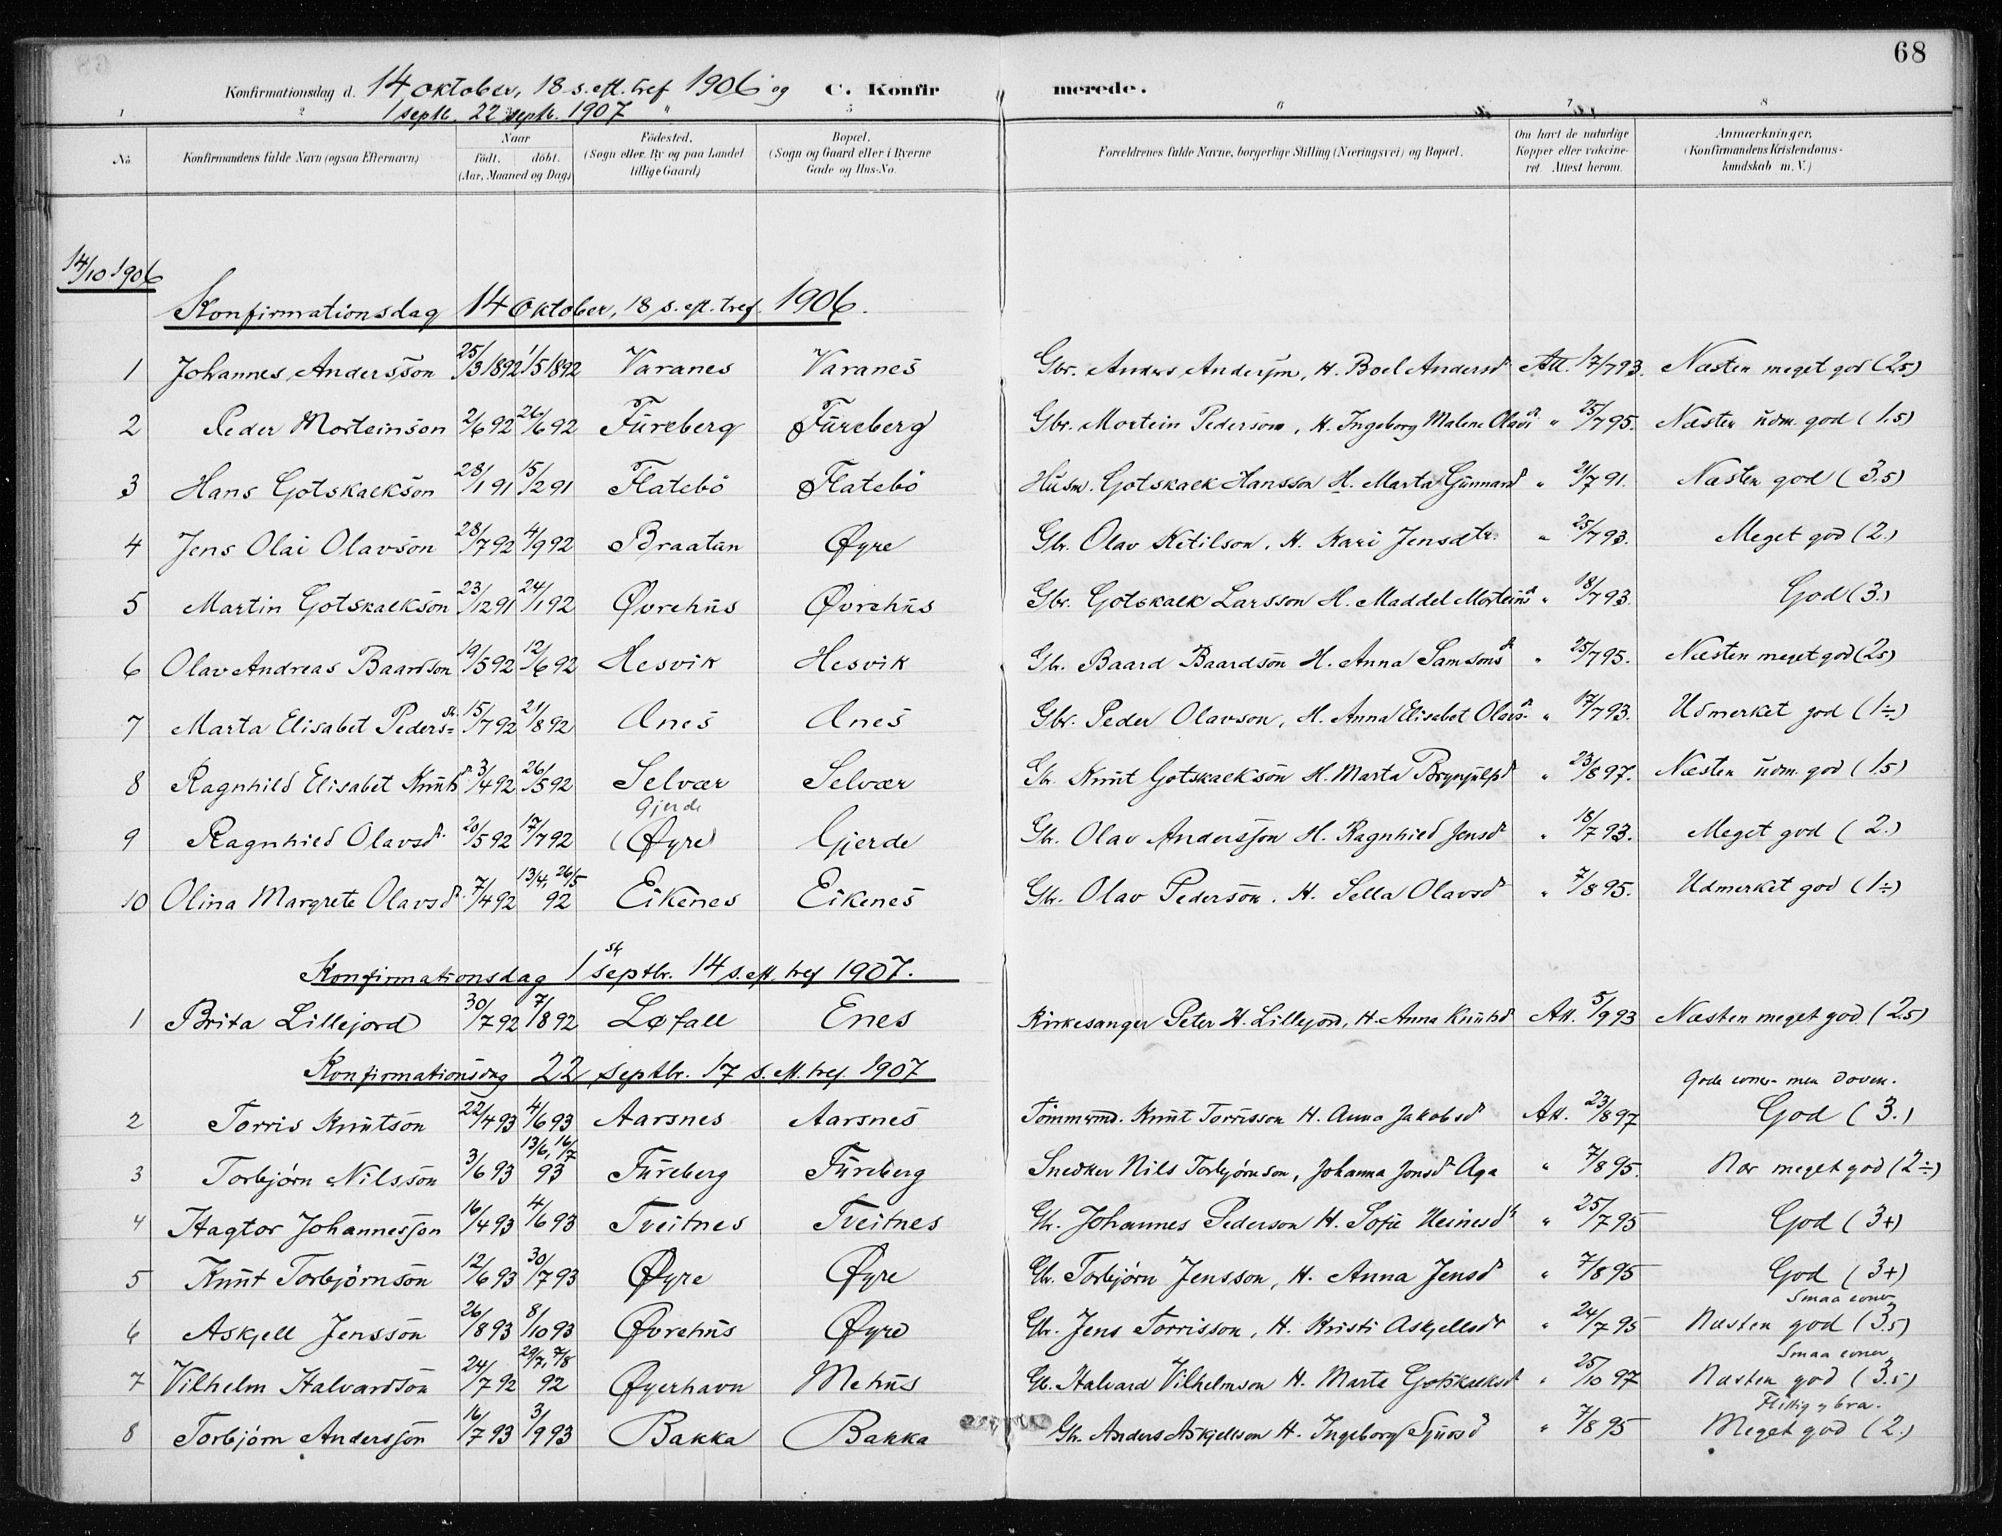 68
Konfirmationsdag d. 14 oktober, 18 s. eft. tref 1906 og C. Konfirmerede.
1 septb. 22 septb. 1907 "
1 2 5 6 7 8
No Konfirmandens fulde Navn (ogsaa Efternavn) Naar født. døbt. (Aar, Maaned og Dag) Fødested. (Sogn eller By og paa Landet tillige Gaard) Bopæl. (Sogn og Gaard eller i Byerne Gade og Hus-No. Forældrenes fulde Navne, borgerlige Stilling (Næringsvei) og Bopæl. Om havt de naturlige Kopper eller vakcineret. Attest herom. Anmærkninger, (Konfirmandens Kristendomskundskab m. V.)
14/10 1906
Konfirmationsdag 14 oktober, 18 s. eft. tref. 1906.
1 Johannes Andersson 25/3 1892 1/5 1892 Varanes Varanes Gbr. Anders Anderson, H. Boel Andersd Att. 17/7 93. Næsten meget god (2.5)
2 Peder Morteinson 2/6 92 26/6 92 Fureberg Fureberg Gbr. Mortein Pederson, H. Ingeborg Malene Olavsd " 25/7 95. Næsten udm. god (1.5)
3 Hans Gotskalkson 28/1 91 15/2 91 Flatebø Flatebø Husm. Gotskalk Hansson H. Marta Gunnard " 21/7 91. Næsten god (3.5)
4 Jens Olai Olavson 28/7 92 4/9 92 Braatun Øyre Gbr. Olav Ketilson, H. Kari Jensdtr. " 25/7 93. Meget god (2.)
5 Martin Gotskalkson 23/12 91 24/1 92 Øvrehus Øvrehus Gbr. Gotskalk Larsson H. Maddel Morteinsd " 18/7 93. God (3.)
6 Olav Andreas Baardson 19/5 92 12/6 92 Hesvik Hesvik Gbr. Baard Baardson H. Anna Samsonsd " 25/7 95. Næsten meget god (2.5)
7 Marta Elisabet Pedersdr. 15/7 92 21/8 92 Ænes Ænes Gbr. Peder Olavson, H. Anna Elisabet Olavsd. " 17/7 93. Udmerket god (1÷)
8 Ragnhild Elisabet Knutsd 3/4 92 26/5 92 Selvær Selvær Gbr. Knut Gotskalkson H. Marta Brynjulfsd " 23/8 97. Næsten udm. god (1.5)
Gjerde
9 Ragnhild Olavsd. 20/5 92 17/7 92 (Øyre) Gjerde Gbr. Olav Andersson H. Ragnhild Jensd " 18/7 93. Meget god (2.)
10 Olina Margrete Olavsd. 7/4 92 13/4, 26/5 92 Eikenes Eikenes Gbr. Olav Pederson, H. Sella Olavsd " 7/8 95. Udmerket god (1÷)
Konfirmationsdag 1ste septbr. 14 s. eft. tref 1907.
1 Brita Lillejord 30/7 92 7/8 92 Løfall Enes Kirkesanger Peter H. Lillejord, H. Anna Knutsd Att. 5/9 93 Næsten meget god (2.5)
Konfirmationsdag 22 septbr. 17 s. eft. tref. 1907
gode evner men doven.
2 Torris Knutson 22/4 93 4/6 93 Aarsnes Aarsnes Tømmermd. Knut Torrisson H. Anna Jakobsd Att. 23/8 97 God (3.)
3 Torbjørn Nilsson 3/6 93 13/6, 16/7 93 Fureberg Fureberg Snedker Nils Torbjørnson, Johanna Jonsd Aga " 7/8 95. Nær meget god (2÷)
4 Hagtor Johannesson 16/4 93 4/6 93 Tveitnes Tveitnes Gbr. Johannes Pederson H. Sofie Heinesd " 25/7 95 God (3+)
5 Knut Torbjørnson 12/6 93 30/7 93 Øyre Øyre Gbr. Torbjørn Jensson, H. Anna Jensd " 7/8 95 God (3+)
Smaa evner
6 Askjell Jensson 26/8 93 8/10 93 Øvrehus Øyre Gbr. Jens Torrisson, H. Kristi Askjellsd " 24/7 95 Næsten god (3.5)
Smaa evner
7 Vilhelm Halvardson 24/7 92 29/7, 7/8 92 Øyerhavn Mehus Gb. Halvard Vilhelmson H. Marta Gotskalksd " 25/10 97 Næsten god (3.5)
Flittig og bra.
8 Torbjørn Andersson 16/7 93 3/9 93 Bakka Bakka Gbr. Anders Askjellson H. Ingeborg Sjursd " 7/8 95 Meget god (2.)